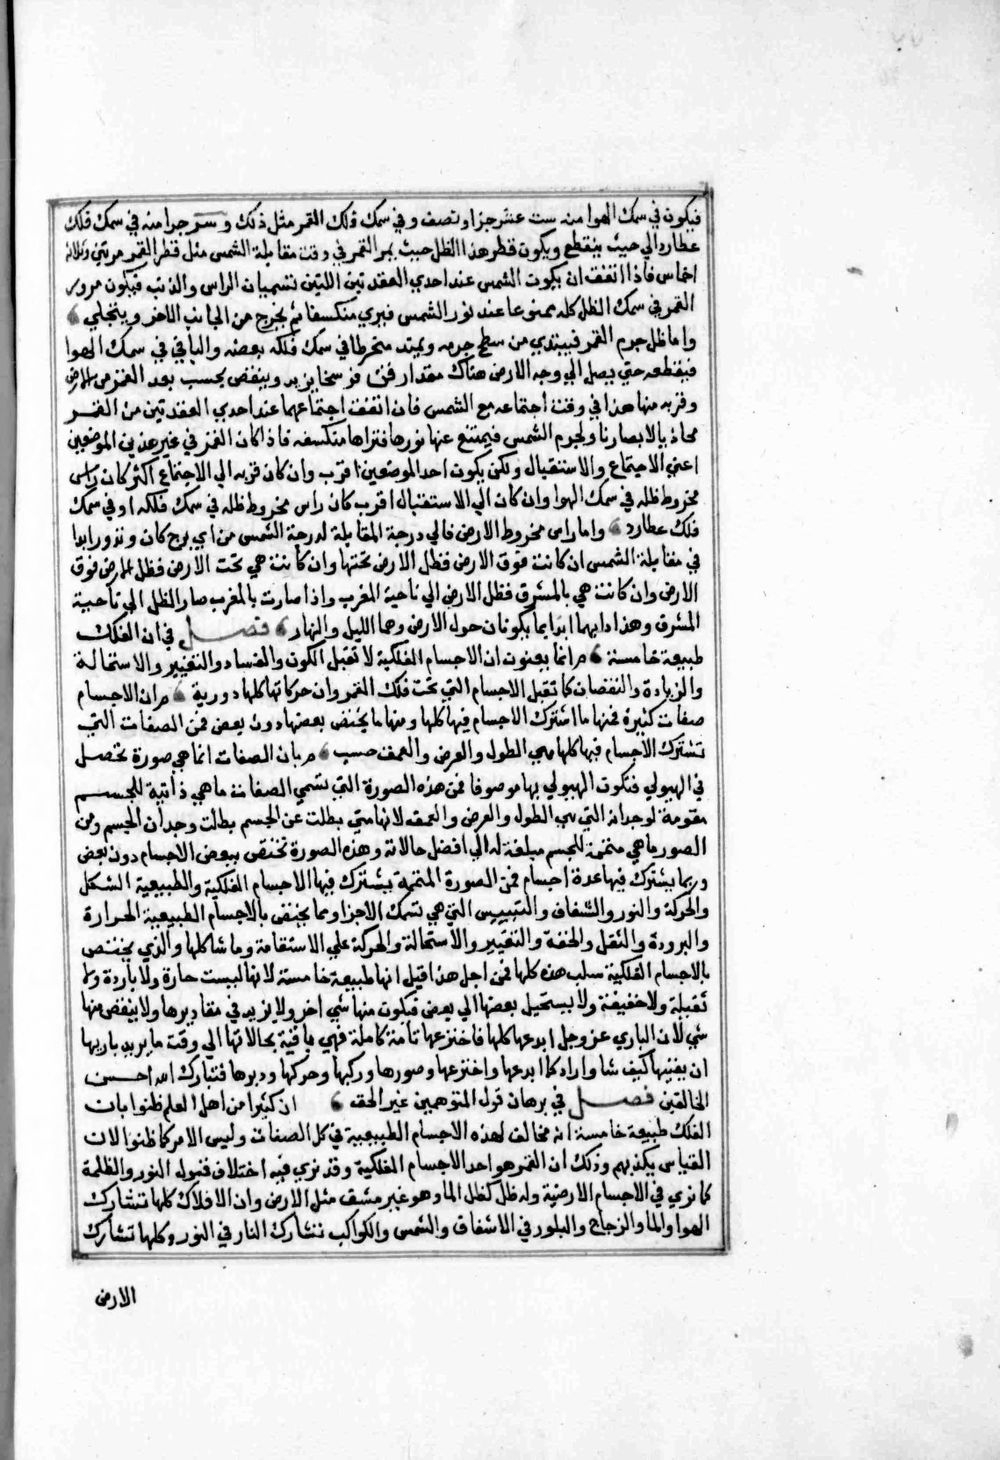 فيكون في سمك الهوا منه ست عشر جزا ونصف وفي سمك فلك القمر مثل ذلك و جزا منه في سمك فلك
عطارد الي حيث ينقطع ويكون قطر هذا الظل حيث يمر القمر في وقت مقابلة الشمس مثل قطر القمر مرتين وثلاثة
اخماس فاذا اتفقت ان يكون الشمس عند احدي العقدتين اللتين تسميان الراس والذنب فيكون مرور
القمر في سمك الظل كله ممنوعا عنه نور الشمس فيري منكسفا ثم يخرج من الجانب الاخر وينجلي
واما ظل جرم القمر فيبتدي من سطح جرمه ويمتد منخرطا في سمك فلكه بعضه والباقي في سمك الهوا
فيقطعه حتي يصل الي وجه الارض هناك مقدار فرسخا يزيد وينقص بحسب بعد القمر من الارض
وقربه منها هذا في وقت اجتماعه مع الشمس فان اتفقت اجتماعهما عند احدي العقدتين من القمر
محاذيا لابصارنا ولجرم الشمس فيمتنع عنها نورها فتراها منكسفه فاذا كان القمر في غير هذين الموضعين
اعني الاجتماع والاستقبال ولكن يكون احد الموضعين اقرب وان كان قربه الي الاجتماع اكثر كان راس
مخروط ظله في سمك الهوا وان كان الي الاستقبال اقرب كان راس مخروط ظله في سمك فلكه او في سمك
فلك عطارد واما راس مخروط الارض فالي درجة المقابلة لدرجة الشمس من اي برج كان وتدور ابدا
في مقابلة الشمس ان كانت فوق الارض فظل الارض تحتها وان كانت هي تحت الارض فظل الارض فوق
الارض وان كانت هي بالمشرق فظل الارض الي ناحية المغرب واذا صارت بالمغرب صار الظل الي ناحية
المشرق وهذا دابهما ابدا يكونان حول الارض وهما الليل والنهار فصل في ان الفلك
طبيعة خامسة انما يعنون ان الاجسام الفلكية لا تقبل الكون والفساد والتغيير والاستحالة
والزيادة والنقصان كما تقبل الاجسام التي تحت فلك القمر وان حركاتها كلها دورية ان الاجسام
صفات كثيرة فمنها ما اشترك الاجسام فيها كلها ومنها ما يختص بعضها دون بعض فمن الصفات التي
تشترك الاجسام فيها كلها هي الطول والعرض والعمق حسب بان الصفات انما هي صورة تحصل
في الهيولي فتكون الهيولي بها موصوفا فمن هذه الصورة التي تسمي الصفات ما هي ذاتية للجسم
مقومة لوجدانه التي هي الطول والعرض والعمق لانها متي بطلت عن الجسم بطلت وجدان الجسم ومن
الصور ما هي متممة للجسم مبلغة له الي افضل حالاته وهذه الصورة تختص ببعض الاجسام دون بعض
وربما يشترك فيها عدة اجسام فمن الصورة المتممة يشترك فيها الاجسام الفلكية والطبيعية الشكل
والحركة والنور والشفاف واليبس التي هي تمسك الاجزا ومما يختص بالاجسام الطبيعية الحرارة
والبرودة والثقل والخفة والتغيير والاستحالة والحركة علي الاستقامة وما شاكلها والذي يختص
بالاجسام الفلكية سلب هذه كلها فمن اجل هذا قيل انها طبيعة خامسة لانها ليست حارة ولا باردة ولا
ثقيلة ولا خفيفة ولا يستحيل بعضها الي بعض فيكون منها شي اخر ولا يزيد في مقاديرها ولا ينقص منها
شي لان الباري عز وجل ابدعها كلها فاخترعها تامة كاملة فهي باقية بحالاتها الي وقت ما يريد باريها
ان يفنيها كيف شا واراد كما ابدعها واخترعها وصورها وركبها وحركها ودبرها فتبارك الله احسن
الخالقين فصل في برهان قول المتوهمين غير الحقه ان كثيرا من اهل العلم ظنوا بان
الفلك طبيعة خامسة انه مخالف لهذه الاجسام الطبيعية في كل الصفات وليس الامر كما ظنوا لان
القياس يكذبهم وذلك ان القمر هو احد الاجسام الفلكية وقد نري فيه اختلاف قبوله النور والظلمة
كما نري في الاجسام الارضية وله ظل كظل الما وهو غير مشف مثل الارض وان الافلاك كلها تشارك
الهوا والما والزجاج والبلور في الاشفاف والشمس والكواكب تشارك النار في النور وكلها تشارك
الارض